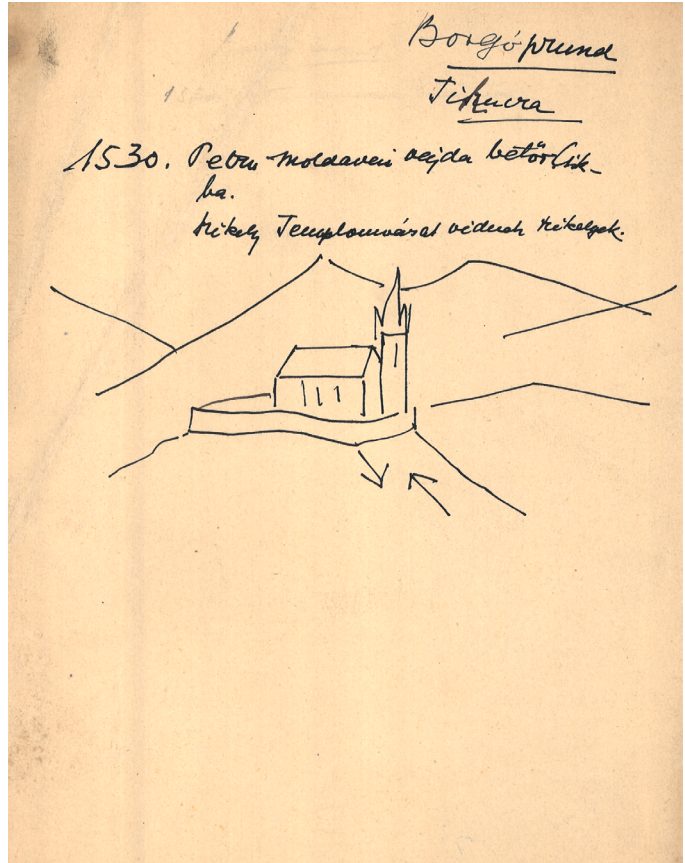 Borgóprund
Tihucra
1530. Petru moldavai vajda betör Csik-
ba.
székely Templomvárat védnek székelyek.